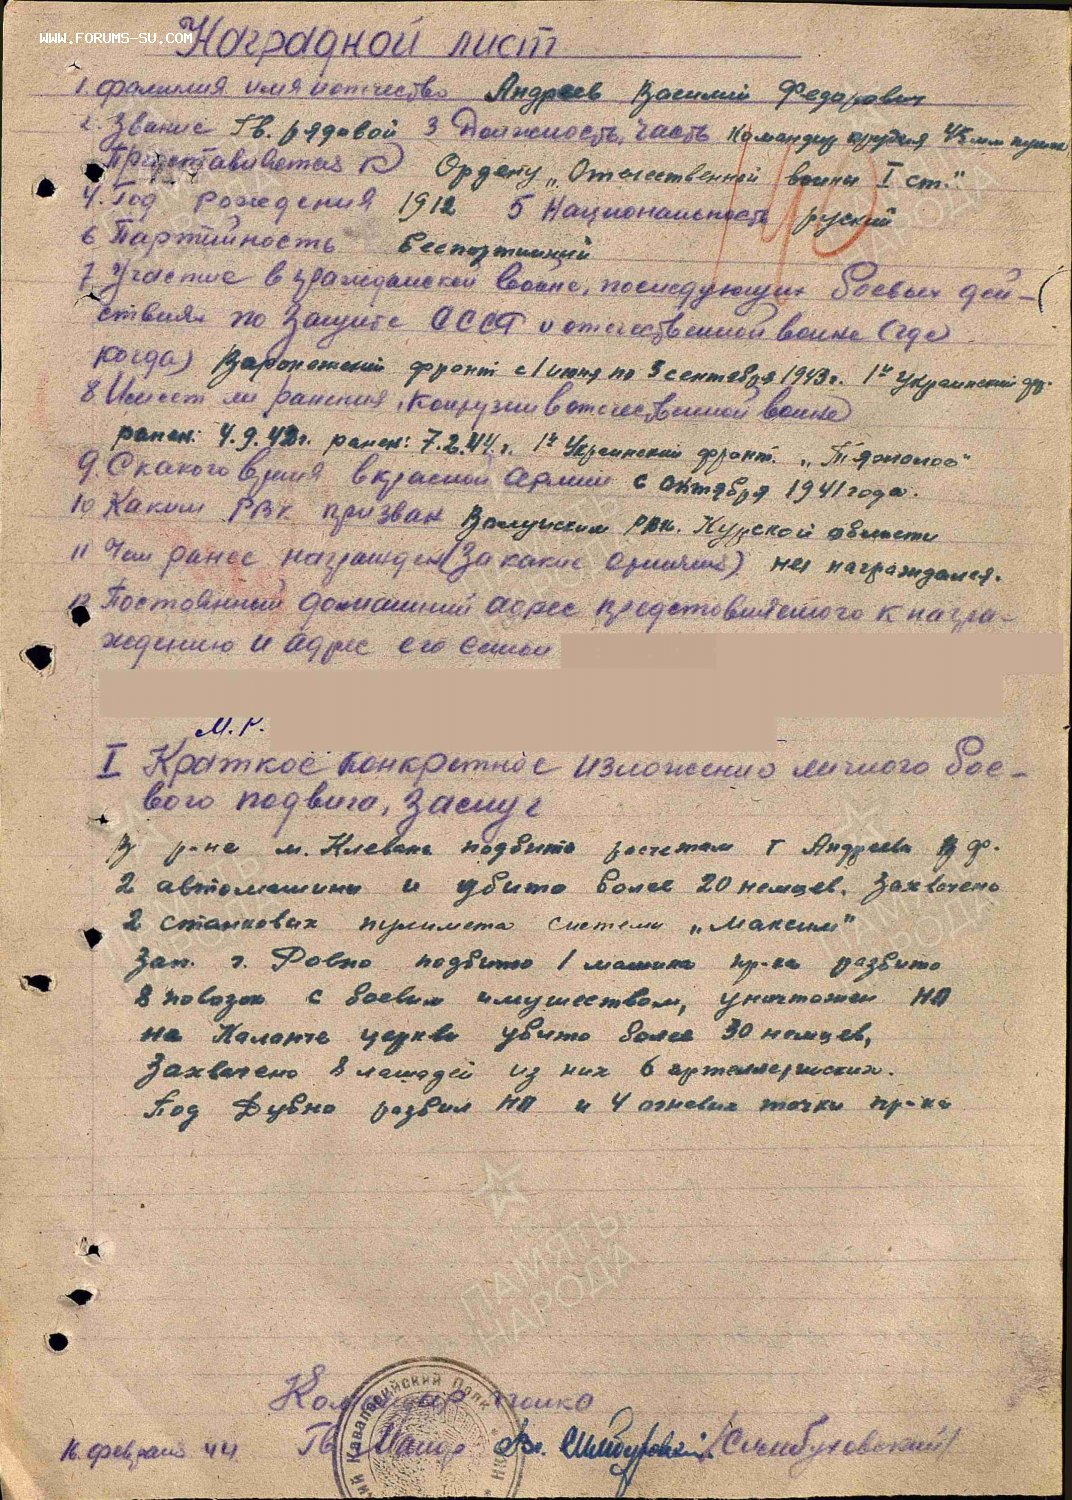 WWW.FORUMS-SU.COM
Наградной лист
1. фамилия имя и отчество Андреев Василий Федорович
2. Звание Гв. рядовой 3 Должность, часть командир орудия 45мм пушки
Представляется к Ордену „Отечественной войны I ст."
4. Год рождения 1912 5 Национальность руский
6 Партийность беспортийный
7 Участие в гражданской войне, последующих боевых дей-
ствиях по защите СССР и отечественной войне (где
когда) Варонежский фронт с 1 июня по 3 сентября 1943г. 1й Украинский фр.
8 Имеет ли ранения, контузии в отечественной войне
ранен: 4.9.42г. ранен: 7.2.44.г. 1й Украинский фронт. „Тяжолоо"
9. С какого время в красной армии с октября 1941 года.
10 Каким РВК призван Валуйским РВК. Курской области
11 Чем ранее награжден (За какие отличия) не награждался.
12 Постоянный домашний адрес представляемого к награ-
ждению и адрес его семьи
М.Г.
I Краткое конкретное изложение личного бое-
вого подвига, заслуг
В р-не м. Клевань подбито расчетам т Андреева В.Ф.
2 автомашини и убито более 20 немцев. Захвачено
2 станковых пулимета системи „Максим"
Зап. г. Ровно подбито 1 машина пр-ка разбито
8 повозок с боевим имуществом, уничтожен НП
на Каланче церкви убито более 30 немцев,
Захвачено 8 лошадей из них 6 артеллерийских.
Под Дубно разбил НП и 4 огневих точки пр-ка
ПАМЯТЬ
НАРОДА
Командир полка
16 февраля 44 Гв Майор /Слынбуховский/
Кавалерийский Полк
НКО